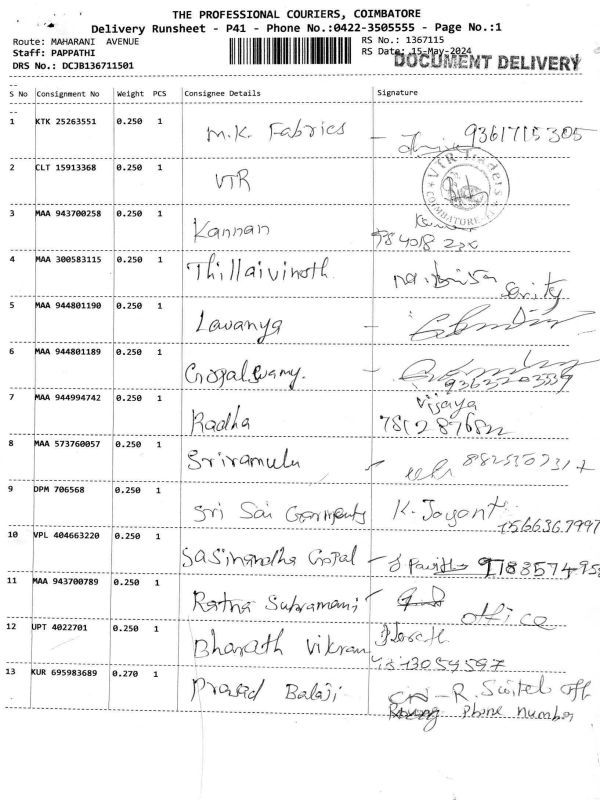 THE PROFESSIONAL COURIERS, COIMBATORE
Delivery Runsheet - P41 - Phone No.:0422-3505555 - Page No.:1
Route: MAHARANI AVENUE
RS No.: 1367115
Staff: PAPPATHI
RS Date: 15-May-2024
DRS No.: DCJB136711501
DOCUMENT DELIVERY
S No Consignment No Weight PCS Consignee Details Signature
1 KTK 25263551 0.250 1 M.K. Fabrics - 9361715305
2 CLT 15913368 0.250 1 VTR
VTR Traders
COIMBATORE
3 MAA 943700258 0.250 1 Kannan
4 MAA 300583115 0.250 1 Thillaivinoth
5 MAA 944801190 0.250 1 Lavanya -
6 MAA 944801189 0.250 1 Gopalswamy. -
7 MAA 944994742 0.250 1 Radha Vijaya
8 MAA 573760057 0.250 1 Sriramulu
9 DPM 706568 0.250 1 Sri Sai Garments K. Jayanti
10 VPL 404663220 0.250 1 Gopal -
11 MAA 943700789 0.250 1 Ratna Subramani office
12 UPT 4022701 0.250 1 Bharath Vikram
13 KUR 695983689 0.270 1 Prasid Balaji - R. Switch off
Phone number